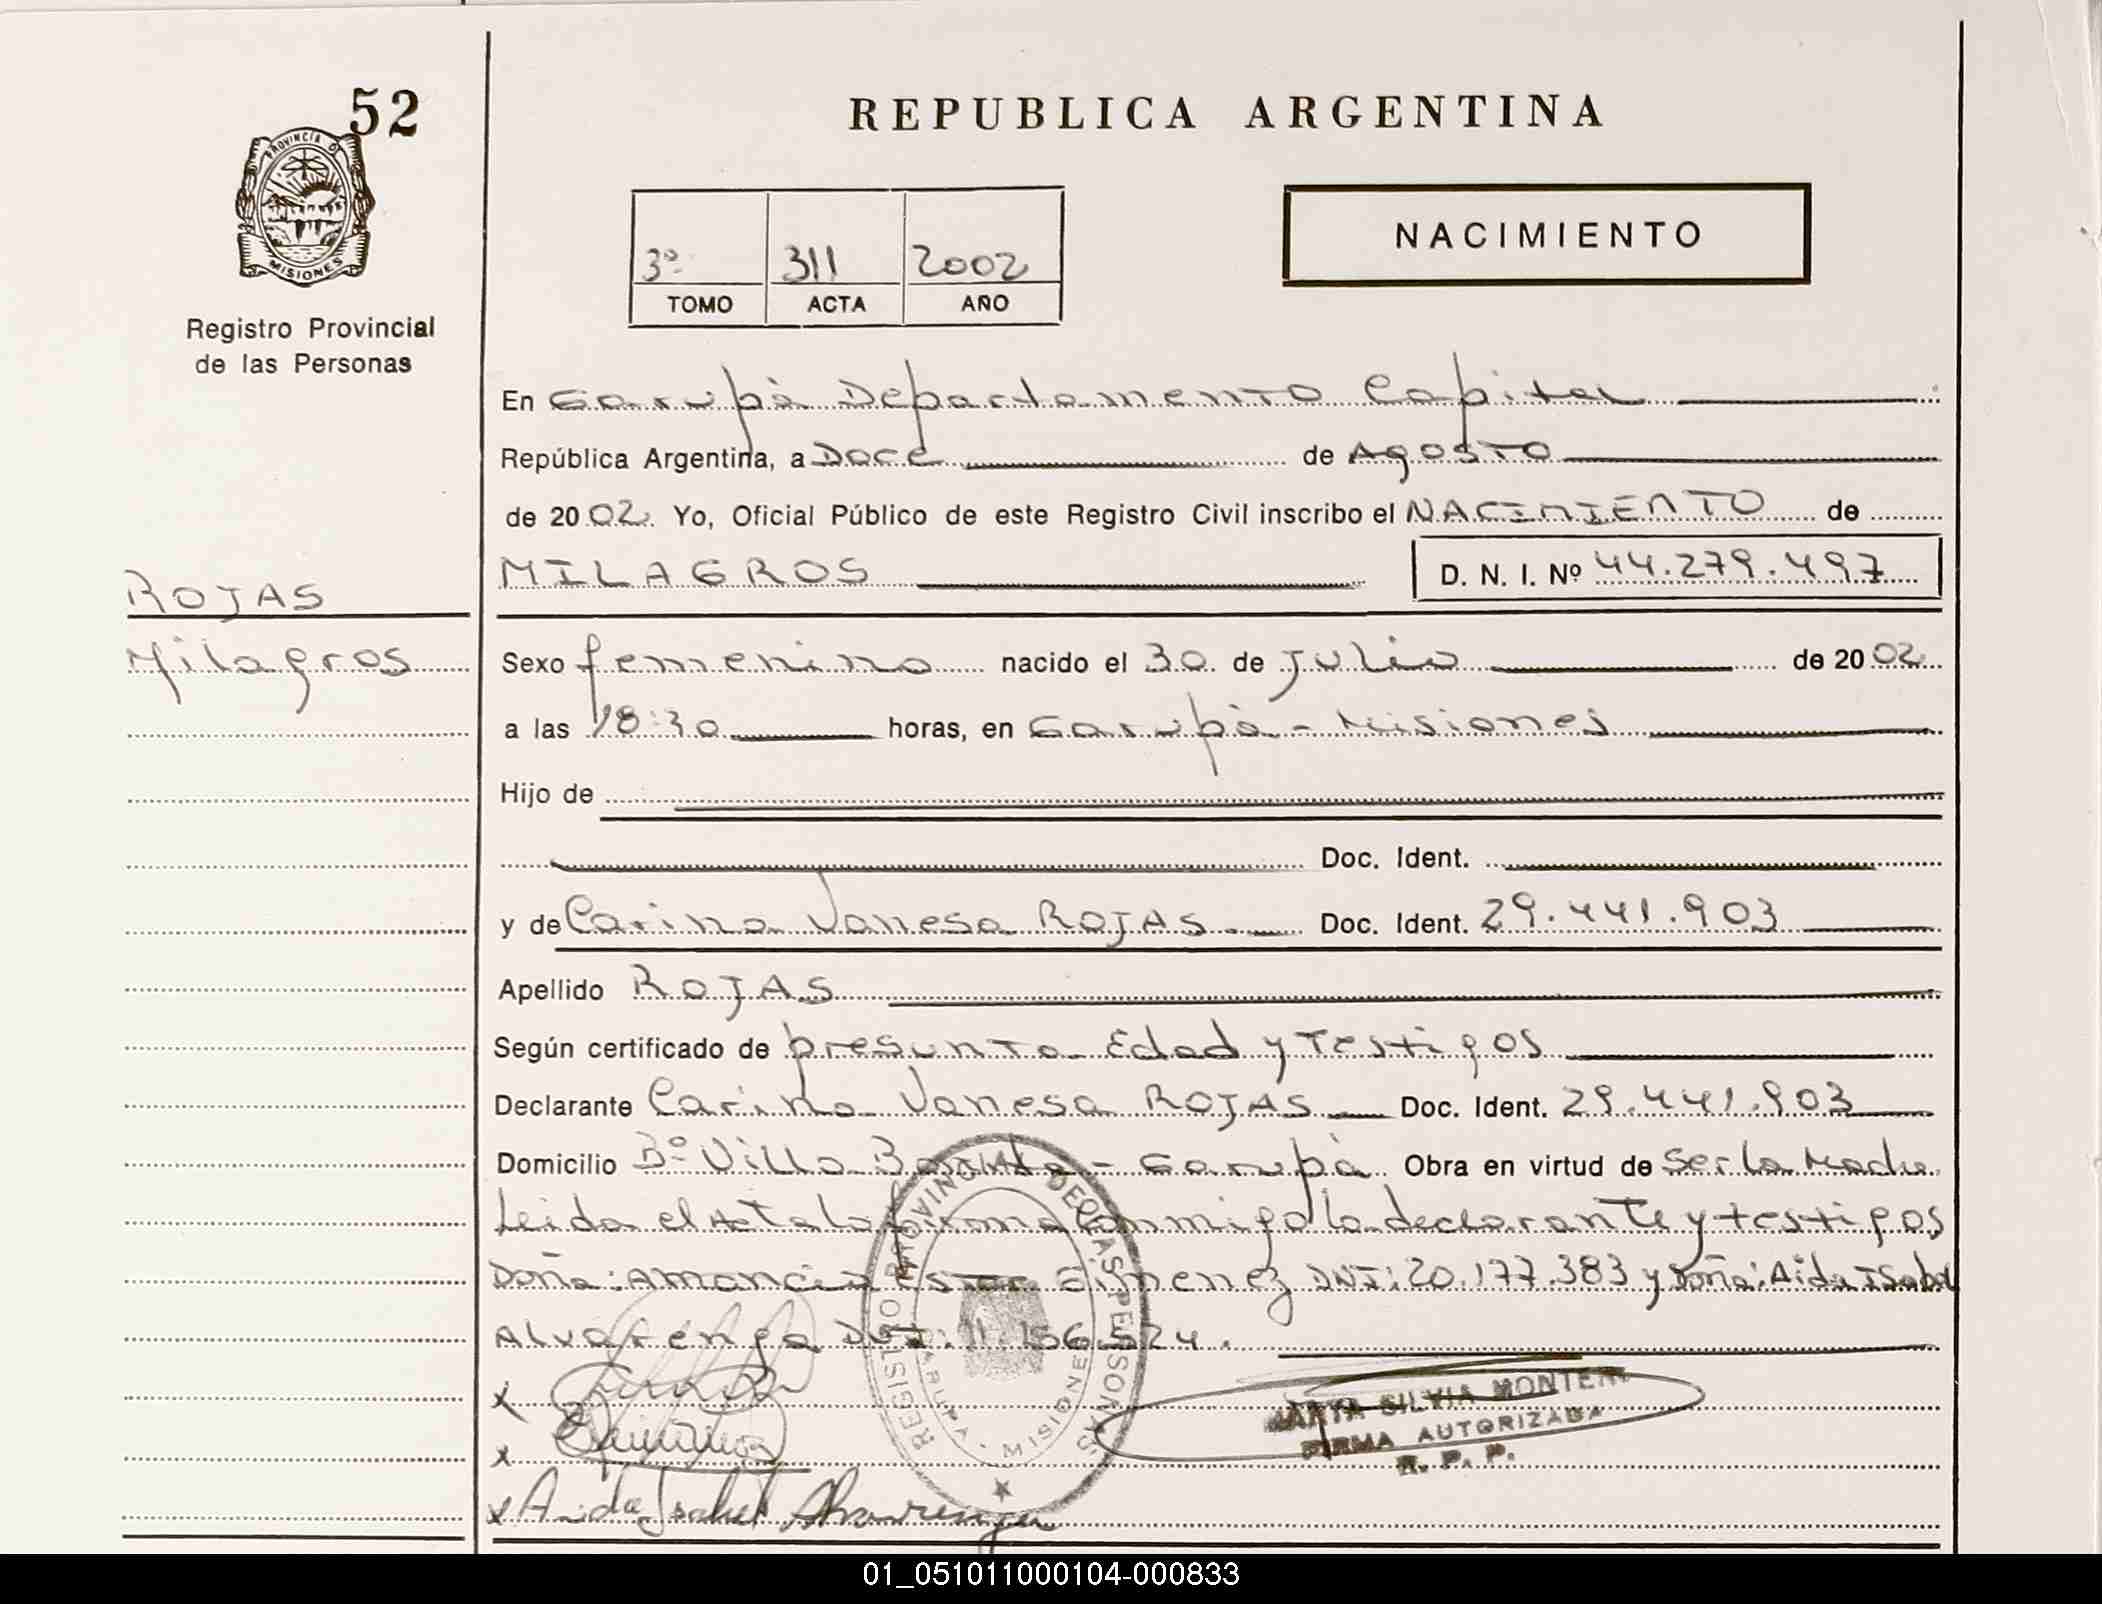 52
REPUBLICA ARGENTINA
PROVINCIA D
MISIONES
Registro Provincial
de las Personas
NACIMIENTO
3º 311 2002
TOMO ACTA AÑO
En Garupà Departamento Capital
República Argentina, a Doce de Agosto
de 2002. Yo, Oficial Público de este Registro Civil inscribo el NACIMIENTO de
MILAGROS D. N. I. Nº 44.279.497
ROJAS
Milagros
Sexo femenino nacido el 30 de Julio de 2002
a las 18:30 horas, en Garupà - Misiones
Hijo de
Doc. Ident.
y de Carina Vanesa ROJAS Doc. Ident. 29.441.903
Apellido ROJAS
Según certificado de presunta Edad y Testigos
Declarante Carina Vanesa ROJAS Doc. Ident. 29.441.903
Domicilio Bº Villa - Garupà Obra en virtud de Ser la Madre
Leida el Acta la firma Conmigo la declarante y testigos
Doña: Amancia Ester Gimenez DNI: 20.177.383 y Doña: Aida Isabel
Alvarenga DNI: 11.156.524.
x
x
x Aida Isabel Alvarenga
REGISTRO PROVINCIAL DE LAS PERSONAS
GARUPA - MISIONES
SILVIA
FIRMA AUTORIZADA
R. P. P.
01_051011000104-000833